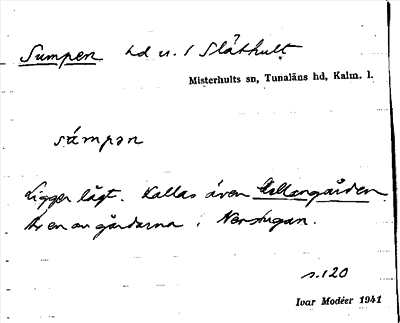 Sumpen hd u. 1 Slåthult
Misterhults sn, Tunaläns hd, Kalm. l.
sámpən
Ligger lågt. Kallas även Mellangården.
Är en av gårdarna i Nerstugan.
s. 120
Ivar Modéer 1941